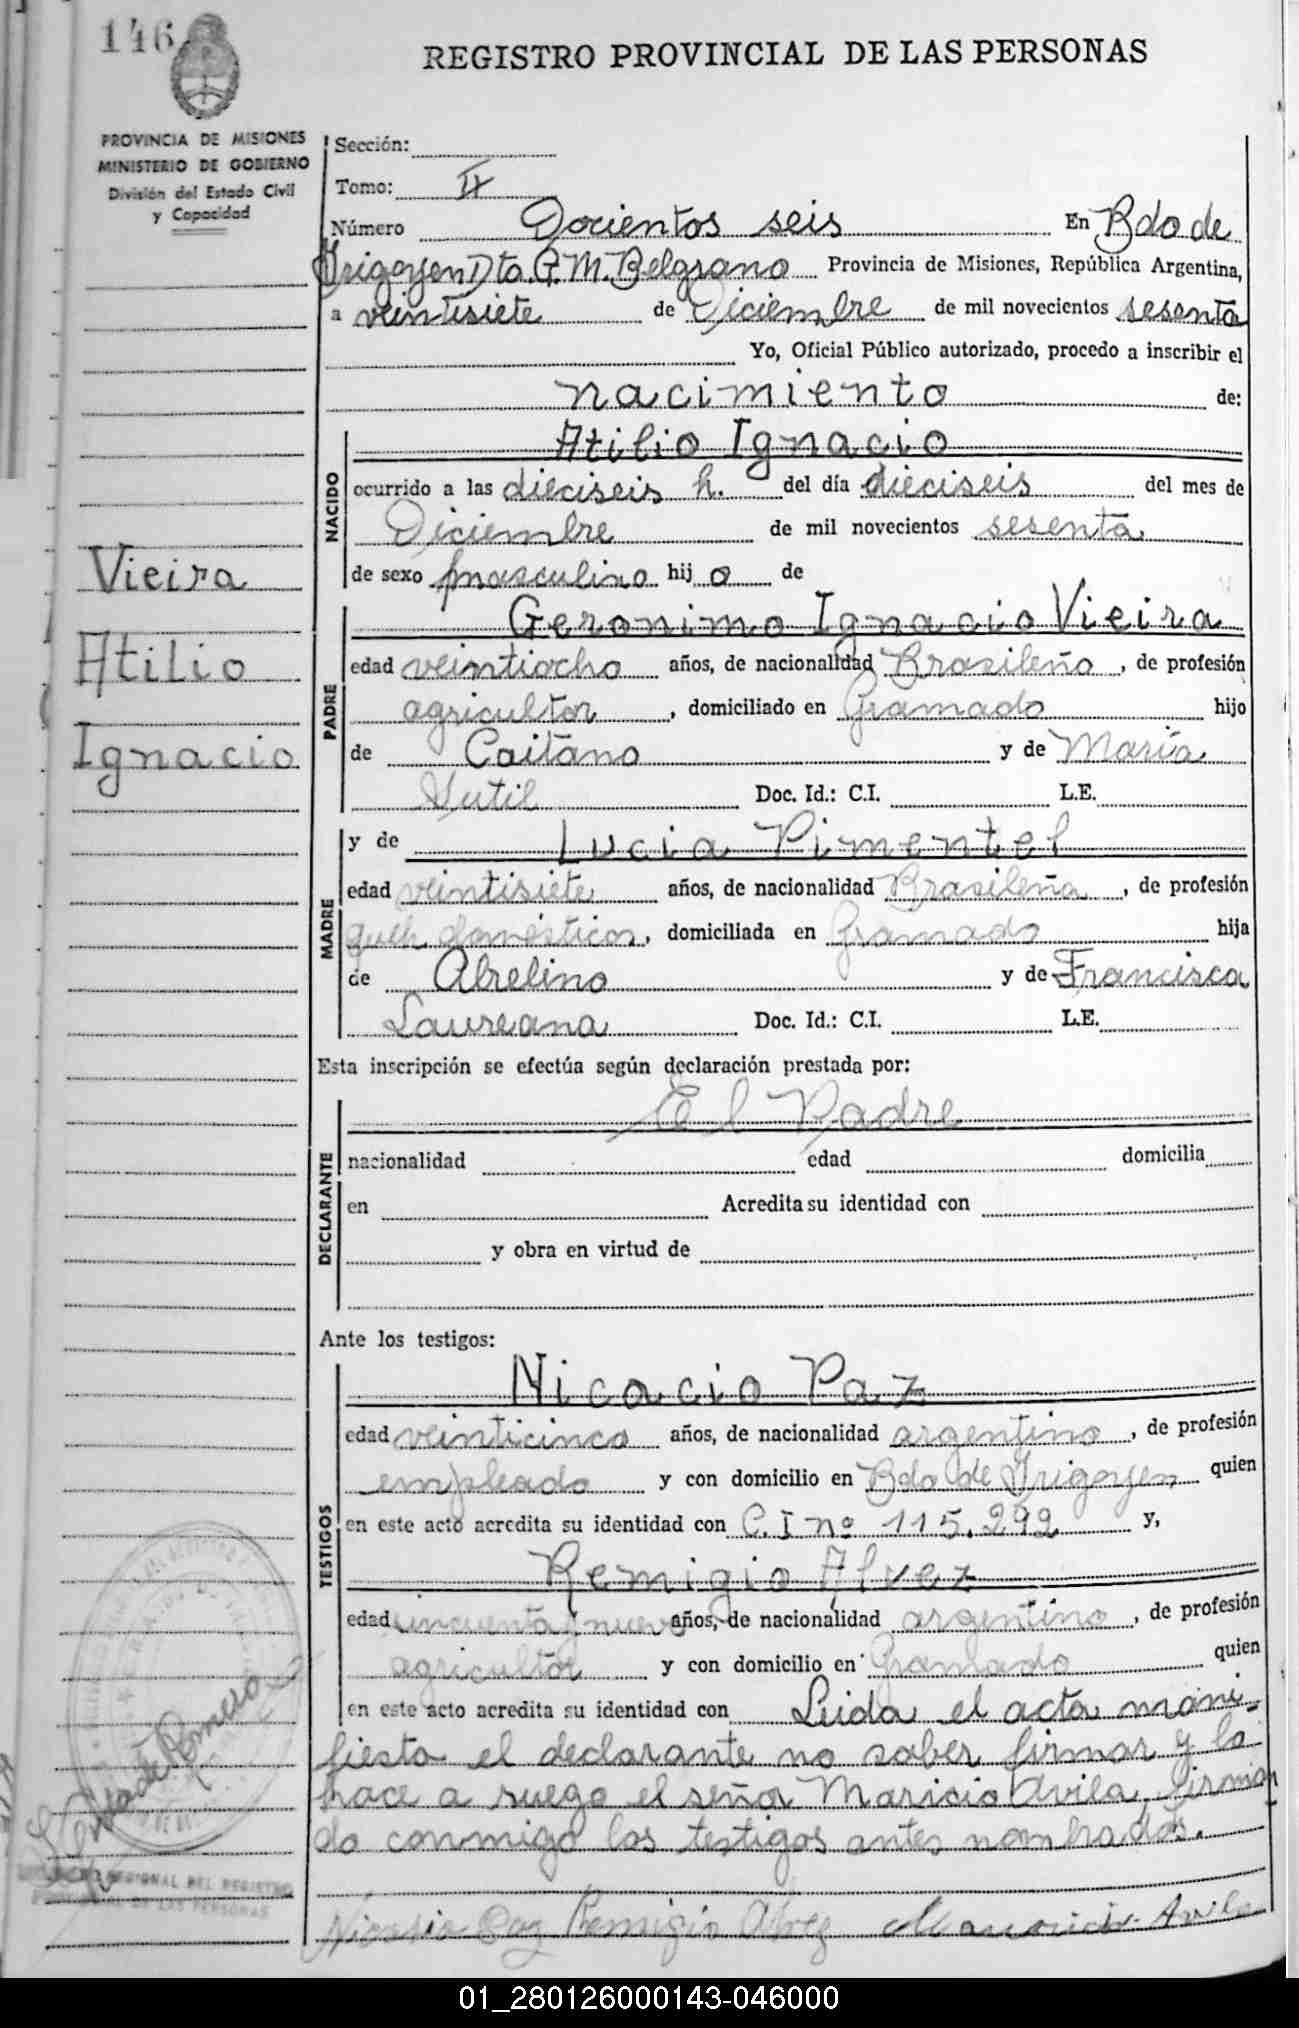 146
REGISTRO PROVINCIAL DE LAS PERSONAS
PROVINCIA DE MISIONES
MINISTERIO DE GOBIERNO
División del Estado Civil
y Capacidad
Vieira
Atilio
Ignacio
Sección:
Tomo: II
Número Docientos seis En Bdo de
Irigoyen Dto. G. M. Belgrano Provincia de Misiones, República Argentina,
a veintisiete de Diciembre de mil novecientos sesenta
Yo, Oficial Público autorizado, procedo a inscribir el
nacimiento de:
NACIDO
Atilio Ignacio
ocurrido a las dieciseis h. del día dieciseis del mes de
Diciembre de mil novecientos sesenta
de sexo masculino hij o de
PADRE
Geronimo Ignacio Vieira
edad veintiocho años, de nacionalidad Brasileño, de profesión
agricultor, domiciliado en Gramado hijo
de Caitano y de María
Sutil Doc. Id.: C.I. L.E.
MADRE
y de Lucia Pimentel
edad veintisiete años, de nacionalidad Brasileña, de profesión
queh. domésticos, domiciliada en Gramado hija
de Abelino y de Francisca
Laureana Doc. Id.: C.I. L.E.
Esta inscripción se efectúa según declaración prestada por:
DECLARANTE
El Padre
nacionalidad edad domicilia
en Acredita su identidad con
y obra en virtud de
Ante los testigos:
TESTIGOS
Nicacio Paz
edad veinticinco años, de nacionalidad argentino, de profesión
empleado y con domicilio en Bdo de Irigoyen quien
en este acto acredita su identidad con C.I nº 115.292 y,
Remigio Alvez
edad cincuenta y nueve años, de nacionalidad argentino, de profesión
agricultor y con domicilio en Gramado quien
en este acto acredita su identidad con Leida el acta mani-
fiesta el declarante no saber firmar y lo
hace a ruego el señor Maricio Avila, firman
do conmigo los testigos antes nombrados.
REGIONAL DEL REGISTRO
DE LAS PERSONAS
Nicasio Paz Remigio Alvez Mauricio Avila
01_280126000143-046000